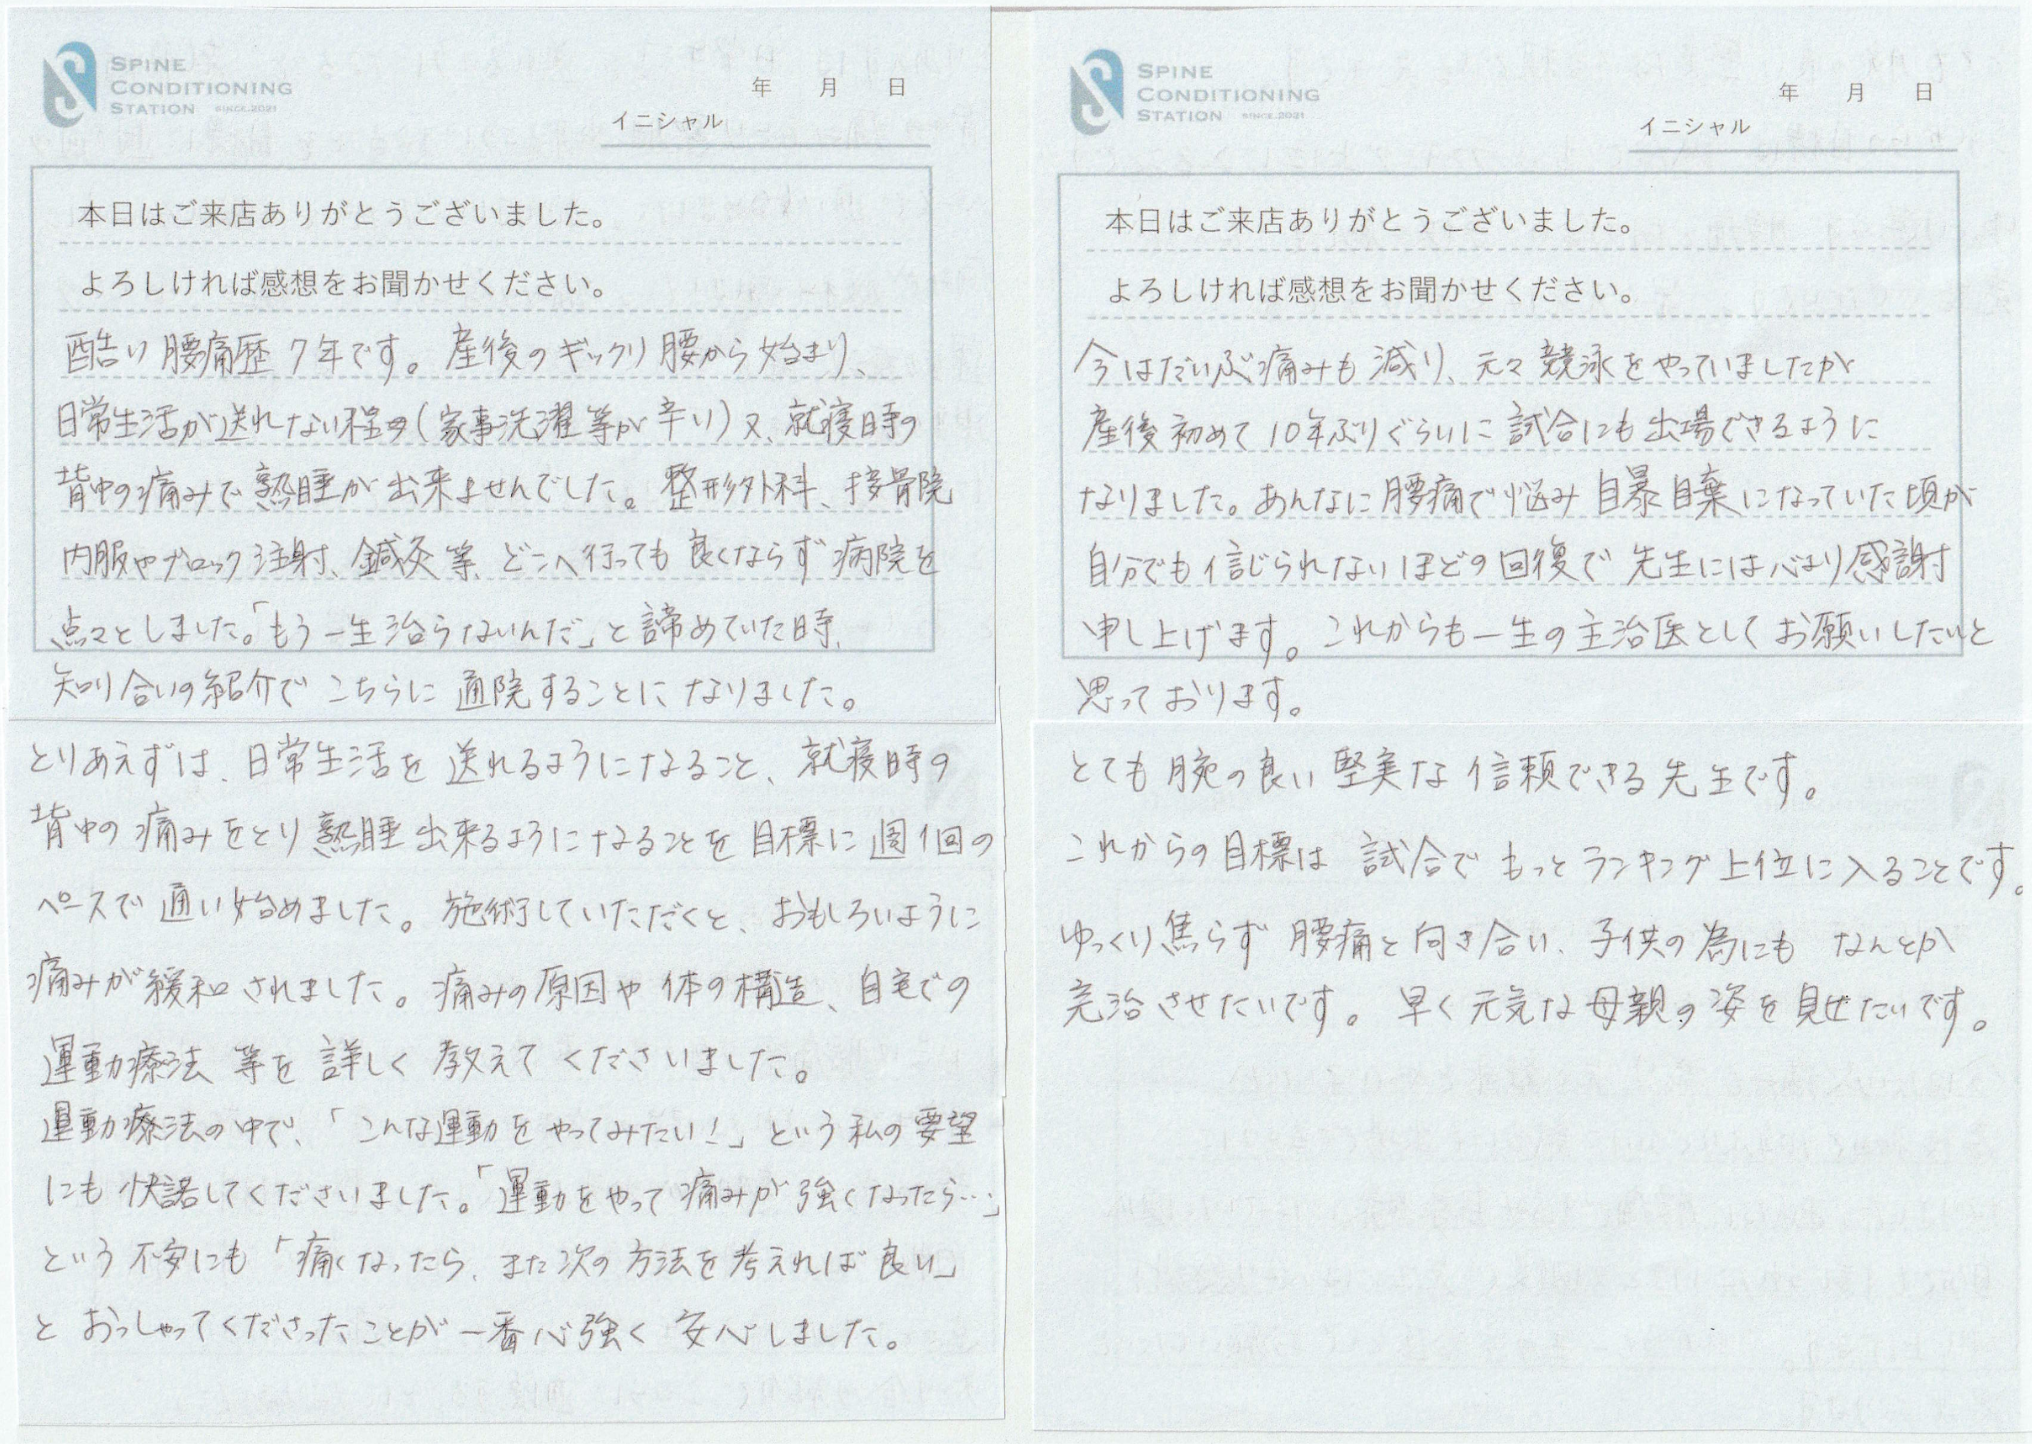 SPINE
CONDITIONING
STATION SINCE.2021
年 月 日
イニシャル
本日はご来店ありがとうございました。
よろしければ感想をお聞かせください。
酷い腰痛歴7年です。産後のギックリ腰から始まり、
日常生活が送れない程の(家事洗濯等が辛い)又、就寝時の
背中の痛みで熟睡が出来ませんでした。整形外科、接骨院
内服やブロック注射、鍼灸等、どこへ行っても良くならず病院を
点々としました。「もう一生治らないんだ」と諦めていた時、
知り合いの紹介でこちらに通院することになりました。
とりあえずは、日常生活を送れるようになること、就寝時の
背中の痛みをとり熟睡出来るようになることを目標に週1回の
ペースで通い始めました。施術していただくと、おもしろいように
痛みが緩和されました。痛みの原因や体の構造、自宅での
運動療法等を詳しく教えてくださいました。
運動療法の中で、「こんな運動をやってみたい!」という私の要望
にも快諾してくださいました。「運動をやって痛みが強くなったら…」
という不安にも「痛くなったら、また次の方法を考えれば良い」
とおっしゃってくださったことが一番心強く安心しました。
SPINE
CONDITIONING
STATION SINCE.2021
年 月 日
イニシャル
本日はご来店ありがとうございました。
よろしければ感想をお聞かせください。
今はだいぶ痛みも減り、元々競泳をやっていましたが
産後初めて10年ぶりぐらいに試合にも出場できるように
なりました。あんなに腰痛で悩み自暴自棄になっていた頃が
自分でも信じられないほどの回復で先生には心より感謝
申し上げます。これからも一生の主治医としてお願いしたいと
思っております。
とても腕の良い堅実な信頼できる先生です。
これからの目標は試合でもっとランキング上位に入ることです。
ゆっくり焦らず腰痛と向き合い、子供の為にもなんとか
完治させたいです。早く元気な母親の姿を見せたいです。